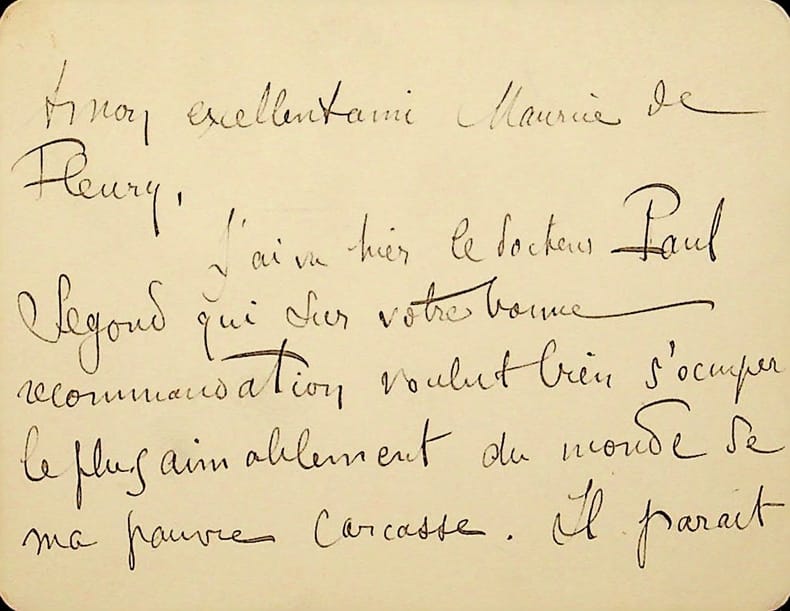 A mon excellent ami Maurice de
Fleury,
J'ai vu hier le docteur Paul
Segond qui sur votre bonne
recommandation voulut bien s'ocuper
le plus aimablement du monde de
ma pauvre carcasse. Il parait